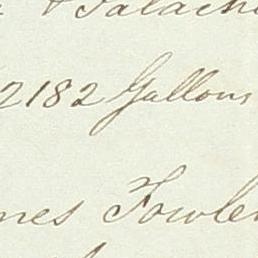 & Palache
2182 Gallons
nes Fowler